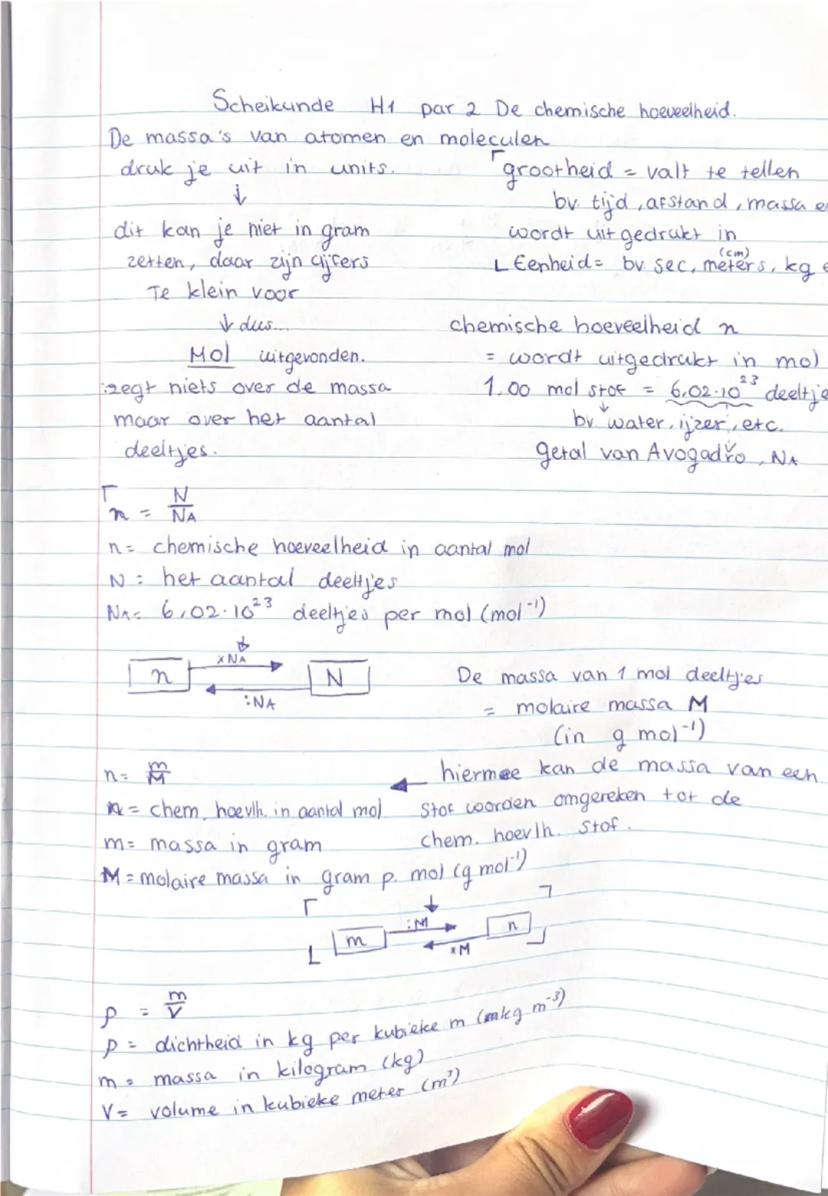 Scheikunde H1 par 2 De chemische hoeveelheid.
De massa's van atomen en moleculen
druk je uit in units.
↓
dit kan je niet in gram
zetten, daar zijn cijfers
Te klein voor
↓ dus...
Mol uitgevonden.
zegt niets over de massa
maar over het aantal
deeltjes.
grootheid = valt te tellen
bv. tijd, afstand, massa e
wordt uitgedrukt in
(cm)
Eenheid = bv. sec, meters, kg e
chemische hoeveelheid n
= wordt uitgedrukt in mol
1,00 mol stof = 6,02·10²³ deeltje
↓
bv. water, ijzer, etc.
getal van Avogadro, NA
n = N/NA
n = chemische hoeveelheid in aantal mol
N = het aantal deeltjes
NA = 6,02·10²³ deeltjes per mol (mol⁻¹)
n ×NA → N
← :NA
De massa van 1 mol deeltjes
= molaire massa M
(in g mol⁻¹)
n = m/M
n = chem. hoevlh. in aantal mol
m = massa in gram
M = molaire massa in gram p. mol (g mol⁻¹)
← hiermee kan de massa van een
stof worden omgereken tot de
chem. hoevlh. stof.
m :M → n
← ×M
ρ = m/V
ρ = dichtheid in kg per kubieke m (kg m⁻³)
m = massa in kilogram (kg)
V = volume in kubieke meter (m³)